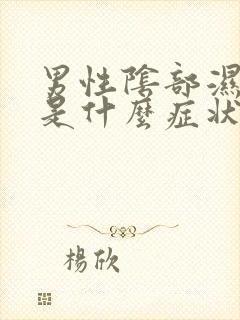 男性陰部濕
是什麼症狀
楊欣